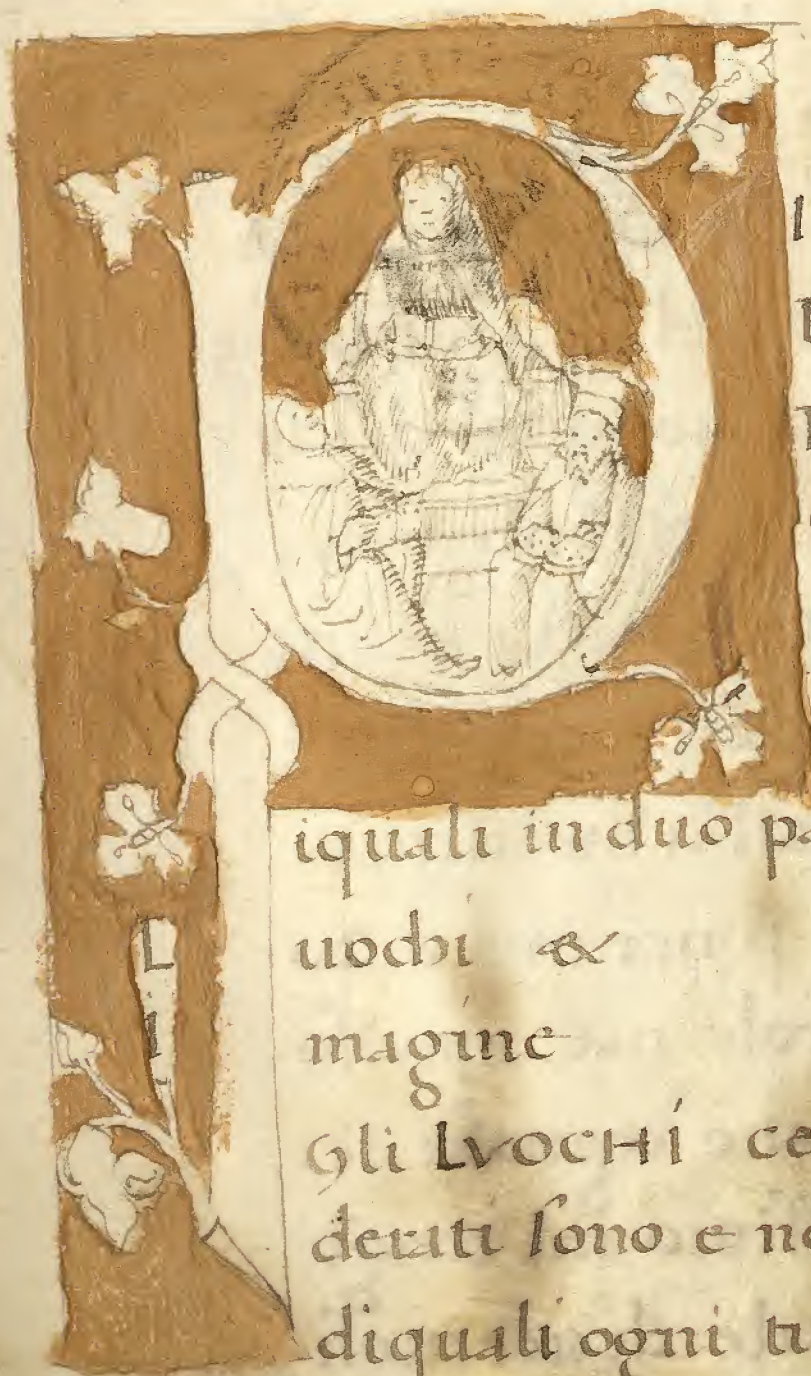 P
iquali in duo pa
Luochi &
imagine
Gli LVOCHI ce
derati sono e no
diquali ogni tu